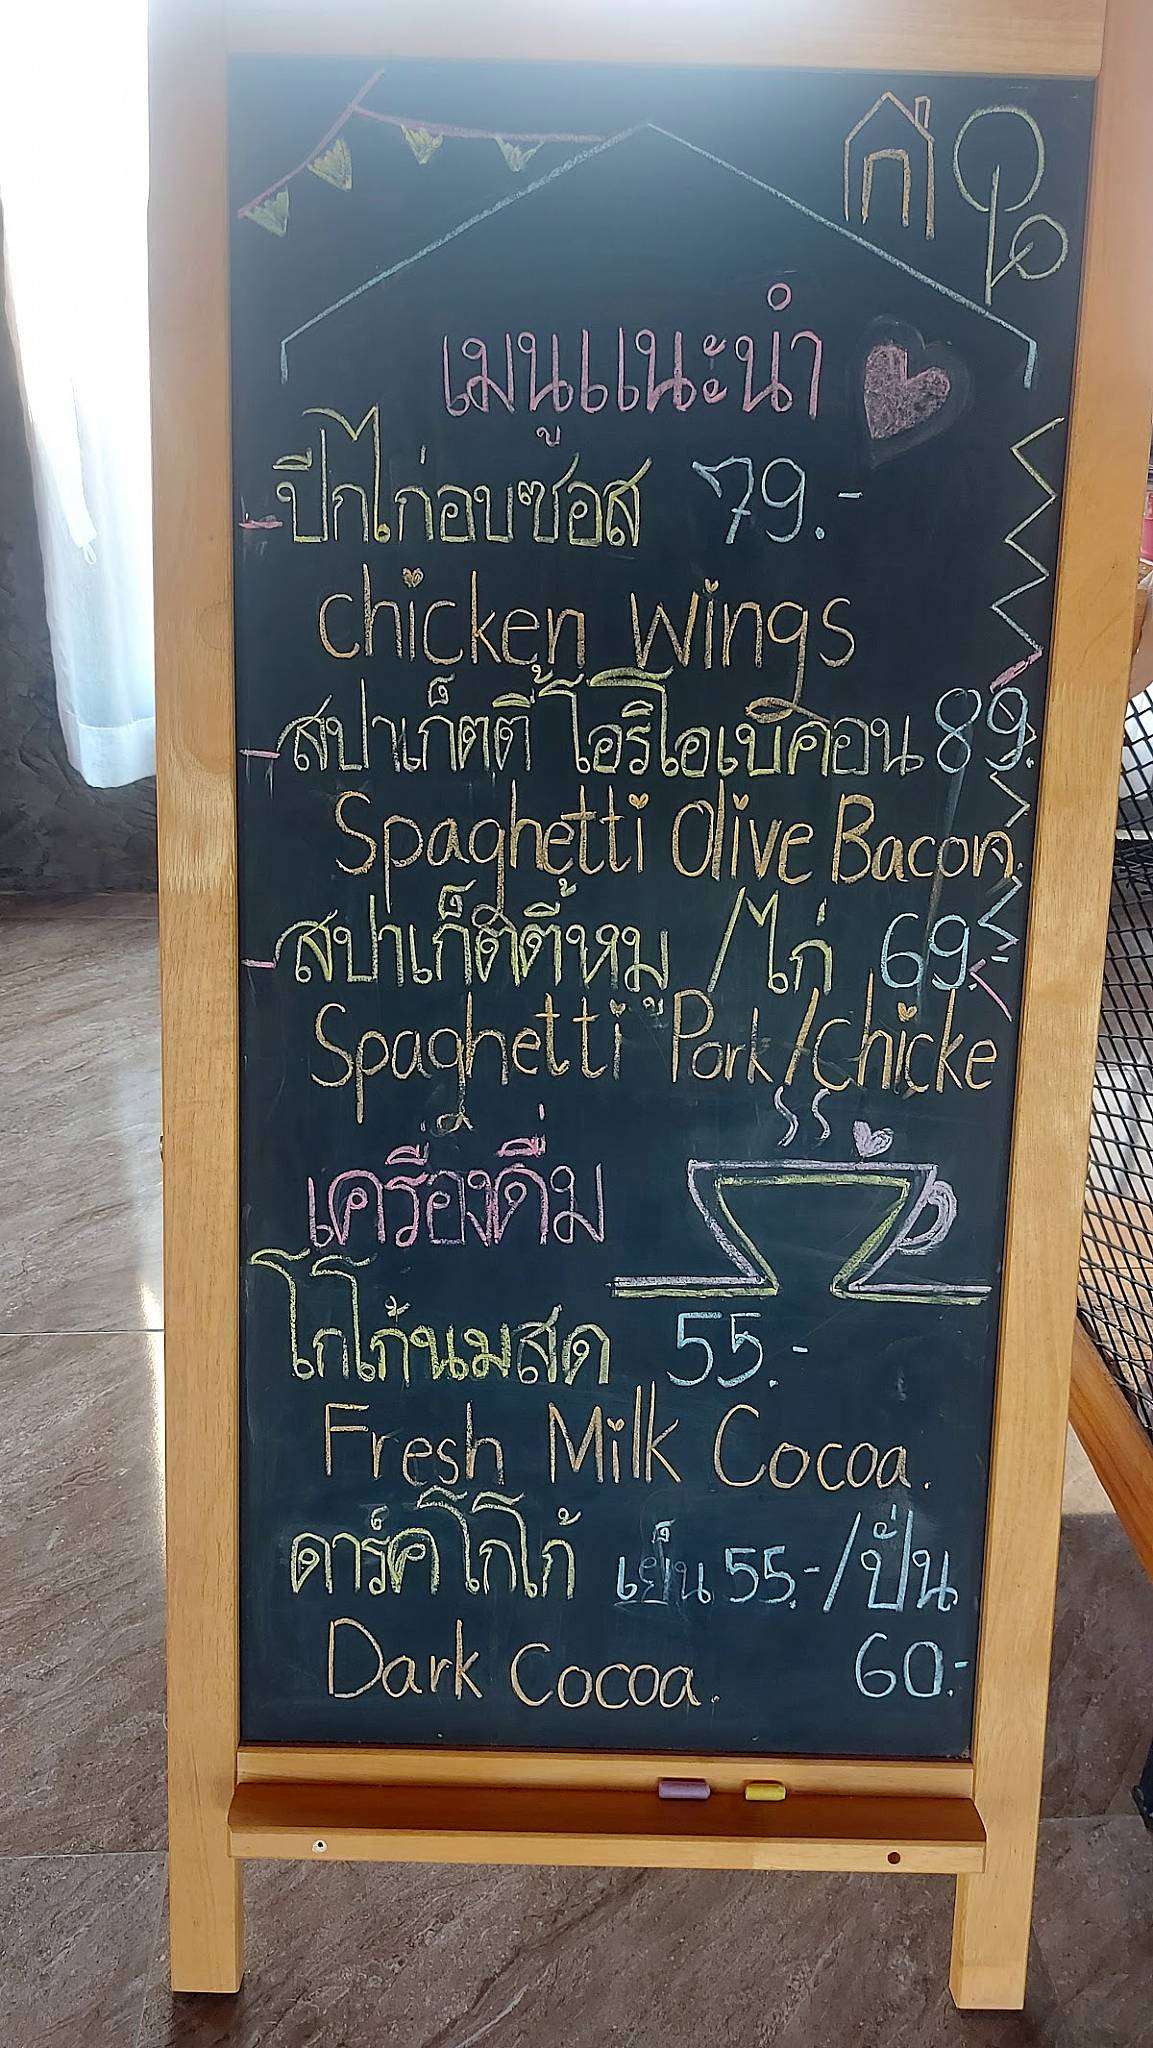 เมนูแนะนำ
- ปีกไก่อบซอส 79.-
chicken wings
- สปาเก็ตตี้ โอริโอเบคอน 89.-
Spaghetti Olive Bacon.
- สปาเก็ตตี้หมู /ไก่ 69.-
Spaghetti Pork/chicke
เครื่องดื่ม
โกโก้นมสด 55.-
Fresh Milk Cocoa.
ดาร์คโกโก้ เย็น 55.-/ปั่น
Dark Cocoa. 60.-